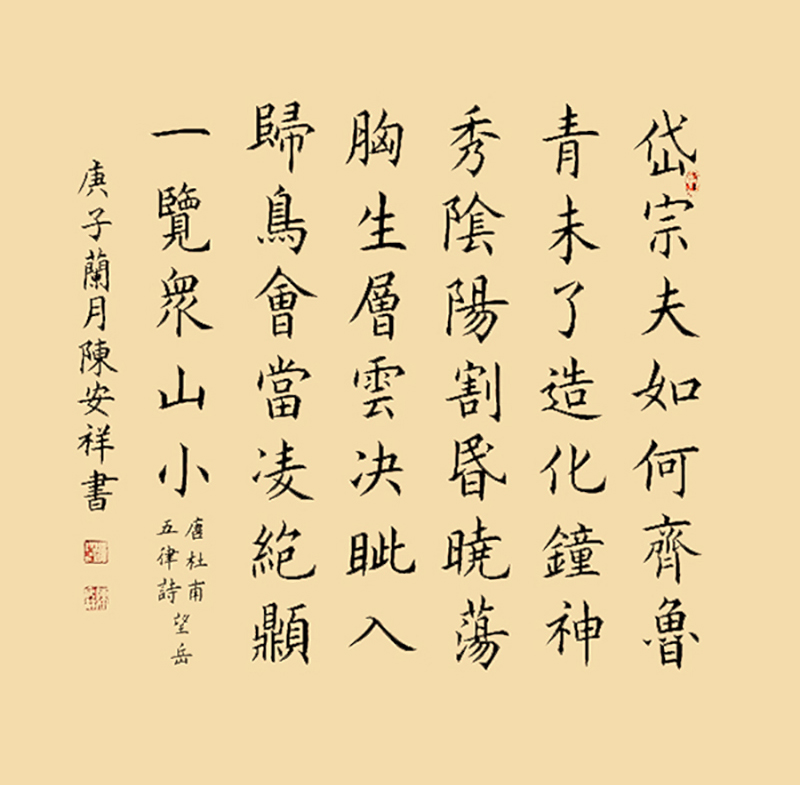 岱宗夫如何齊魯
青未了造化鐘神
秀陰陽割昏曉蕩
胸生層雲决眥入
歸鳥會當凌絕顚
一覽衆山小
唐杜甫
五律詩
望岳
庚子蘭月陳安祥書